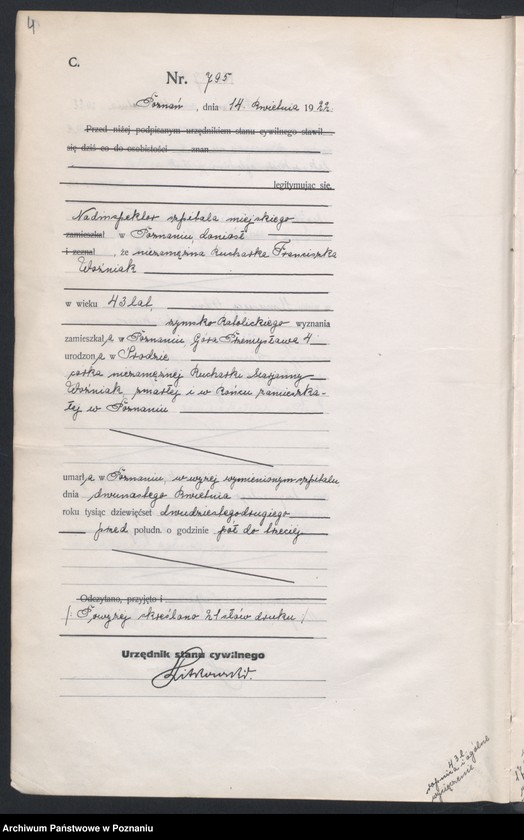 4
C.
Nr. 795
Poznań, dnia 14 kwietnia 1922.
Przed niżej podpisanym urzędnikiem stanu cywilnego stawił
się dziś co do osobistości znan
legitymując się
Nadinspektor szpitala miejskiego
zamieszkał w Poznaniu, doniósł
i zeznał, że niezamężna kucharka Franciszka
Woźniak
w wieku 43 lat,
rzymsko katolickiego wyznania
zamieszkała w Poznaniu, Góra Przemysława 4
urodzona w Środzie
córka niezamężnej kucharki Maryanny
Woźniak, zmarłej i w końcu zamieszka-
łej w Poznaniu
umarła w Poznaniu, w wyżej wymienionym szpitalu
dnia dwunastego kwietnia
roku tysiąc dziewięćset dwudziestegodrugiego
przed połudn. o godzinie pół do trzeciej
Odczytano, przyjęto i
/: Powyżej skreślono 21 słów druku /
Urzędnik stanu cywilnego